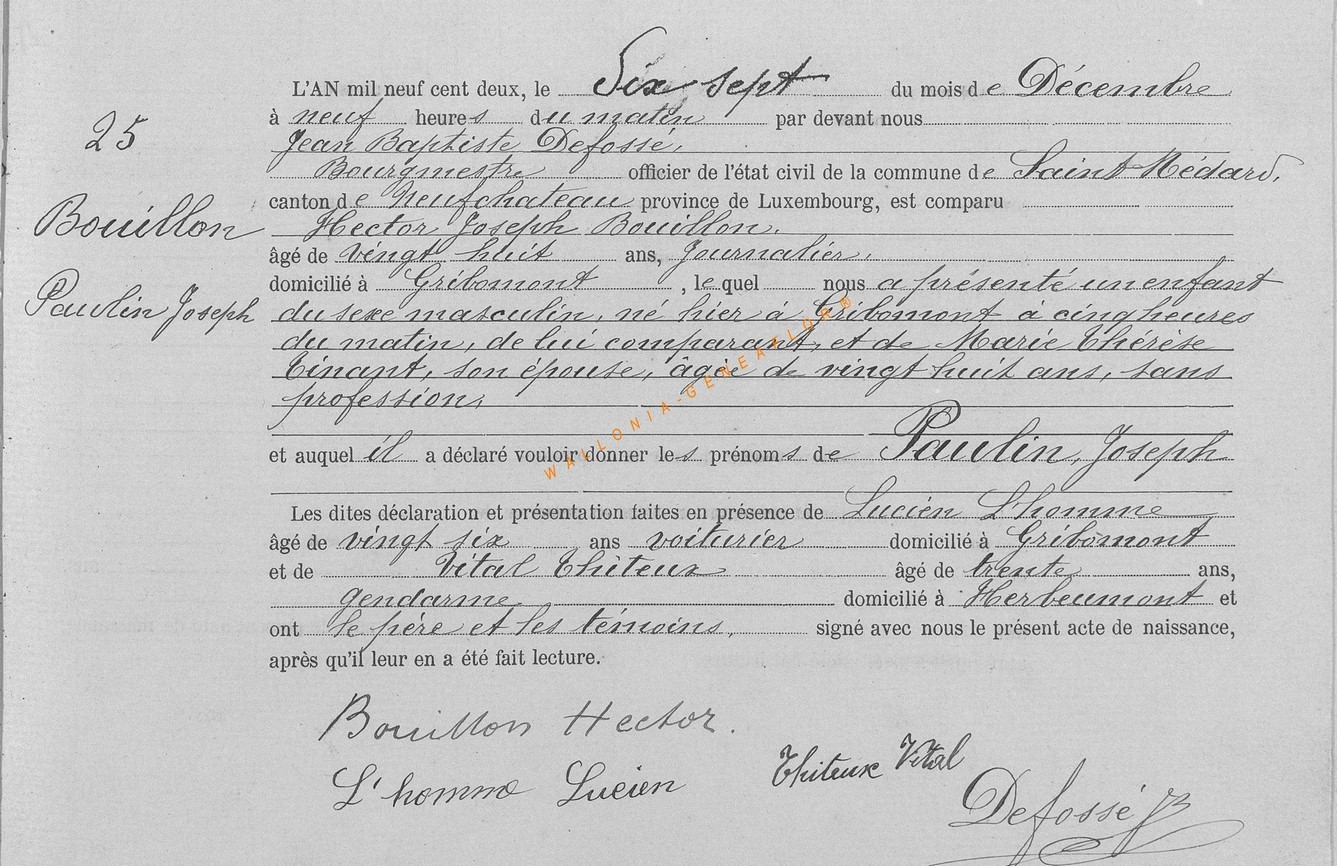 L'AN mil neuf cent deux, le Six sept du mois de Décembre
à neuf heures du matin par devant nous
Jean Baptiste Defossé,
Bourgmestre officier de l'état civil de la commune de Saint Médard,
canton de Neufchateau province de Luxembourg, est comparu
Hector Joseph Bouillon,
âgé de vingt huit ans, Journalier,
domicilié à Gribomont, le quel nous a présenté un enfant
du sexe masculin, né hier à Gribomont à cinq heures
du matin, de lui comparant, et de Marie Thérèse
Tinant, son épouse, âgée de vingt huit ans, sans
profession,
et auquel il a déclaré vouloir donner les prénoms de Paulin, Joseph
Les dites déclaration et présentation faites en présence de Lucien L'homme
âgé de vingt six ans voiturier domicilié à Gribomont
et de Vital Thiteux âgé de trente ans,
gendarme domicilié à Herbeumont et
ont le père et les témoins, signé avec nous le présent acte de naissance,
après qu'il leur en a été fait lecture.
25
Bouillon
Paulin Joseph
Bouillon Hector.
L'homme Lucien
Thiteux Vital
Defossé JB
WALLONIA-GENEAFLOR®